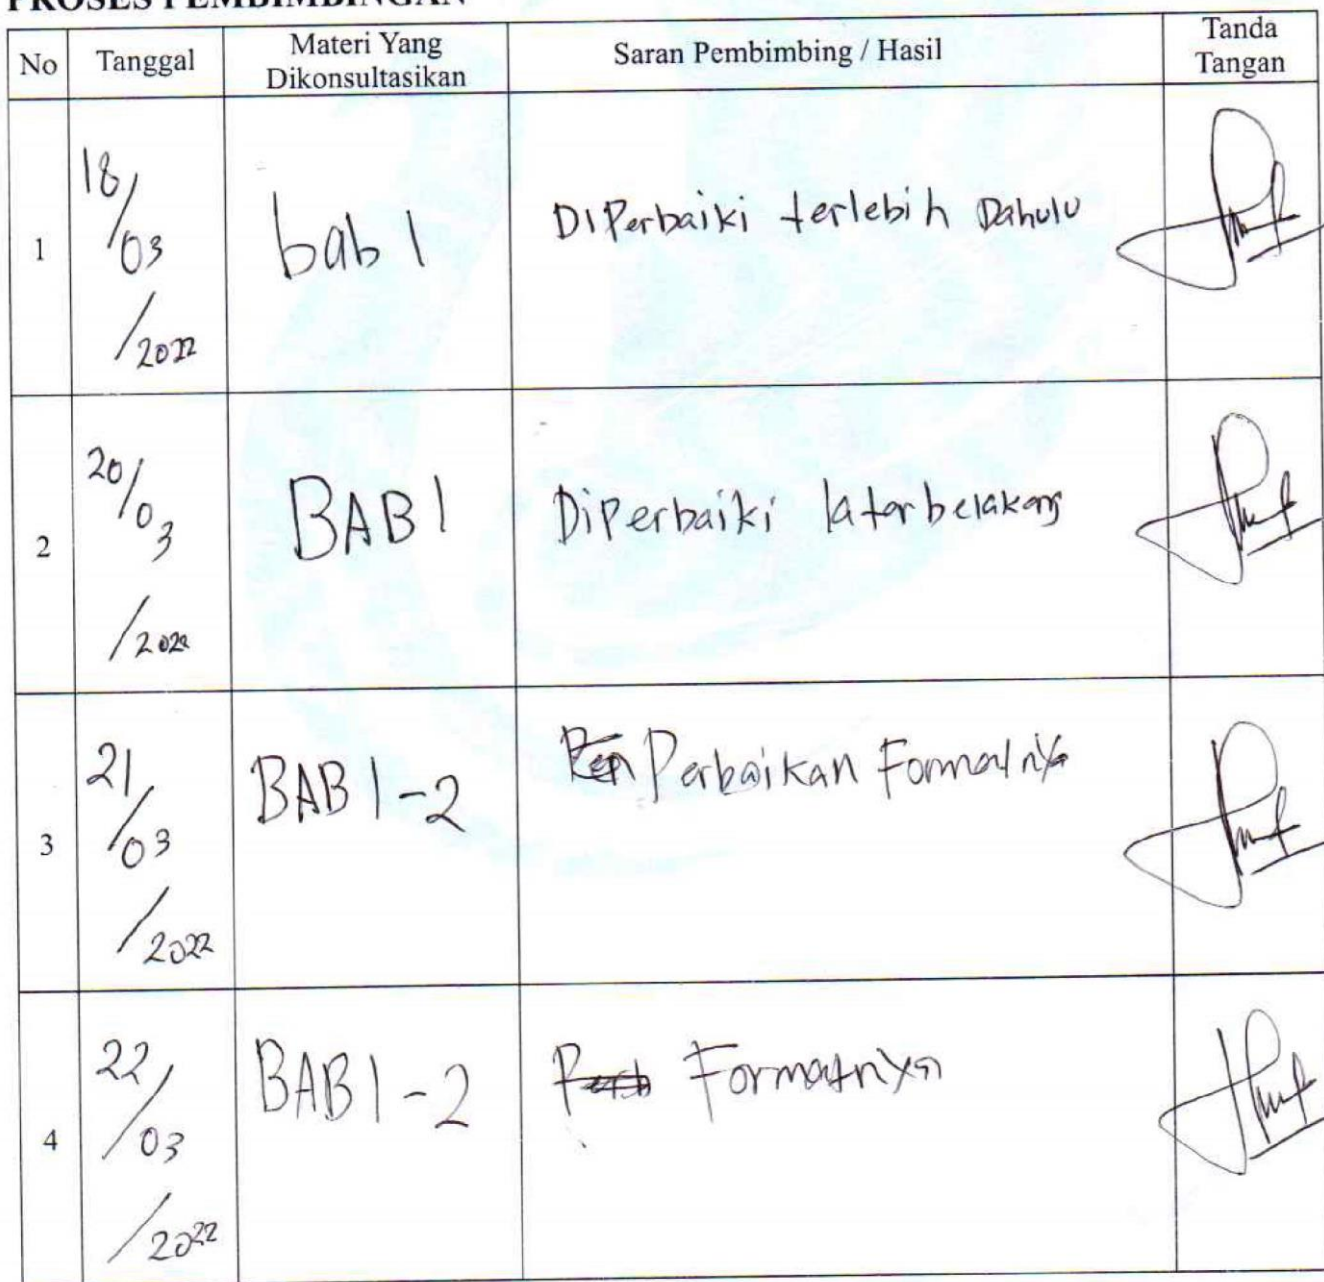 PROSES PEMBIMBINGAN
No Tanggal Materi Yang Dikonsultasikan Saran Pembimbing / Hasil Tanda Tangan
1 18/03/2022 bab 1 DIPerbaiki terlebih Dahulu
2 20/03/2022 BAB 1 Diperbaiki latarbelakang
3 21/03/2022 BAB 1-2 Perbaikan Formatnya
4 22/03/2022 BAB 1-2 Formatnya